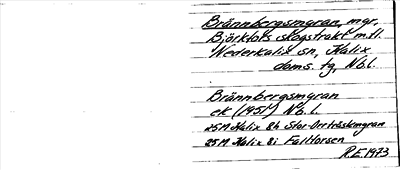 Brännbergsmyran, myr,
Björkfors skogstrakt m.fl.
Nederkalix sn, Kalix
doms. tg, Nb.l.
Brännbergsmyran
ek (1951) Nb.l.
25M Kalix 8h Stor-Orrträskmyran
25M Kalix 8i
R.E. 1973